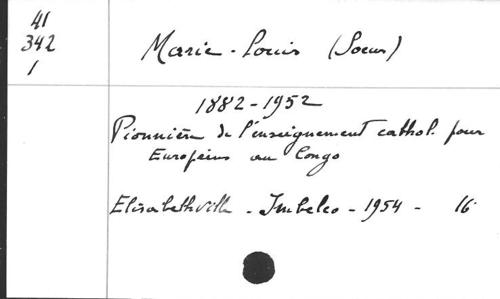 41
342
1
Marie-Louis (Soeur)
1882-1952
Pionnière de l'enseignement cathol. pour
Européens au Congo
Elisabethville - Imbelco - 1954 - 16°